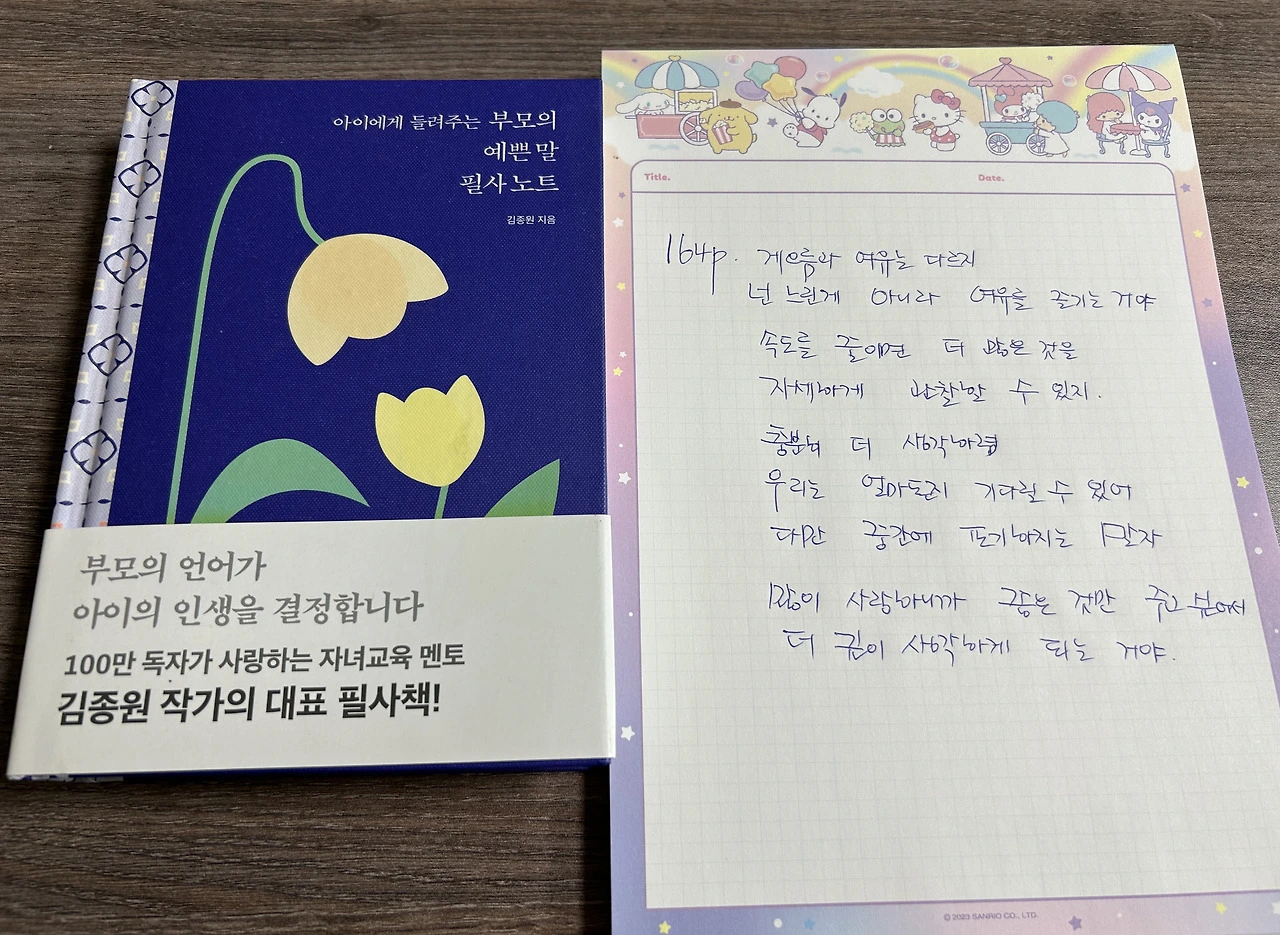 아이에게 들려주는 부모의
예쁜 말
필사 노트
김종원 지음
부모의 언어가
아이의 인생을 결정합니다
100만 독자가 사랑하는 자녀교육 멘토
김종원 작가의 대표 필사책!
Title. Date.
164p. 게으름과 여유는 다르지
넌 느린게 아니라 여유를 즐기는 거야
속도를 줄이면 더 많은 것을
자세하게 관찰할 수 있지.
충분히 더 생각하렴
우리는 얼마든지 기다릴 수 있어
다만 중간에 포기하지는 말자
많이 사랑하니까 좋은 것만 주고
더 깊이 생각하게 되는 거야.
© 2023 SANRIO CO., LTD.